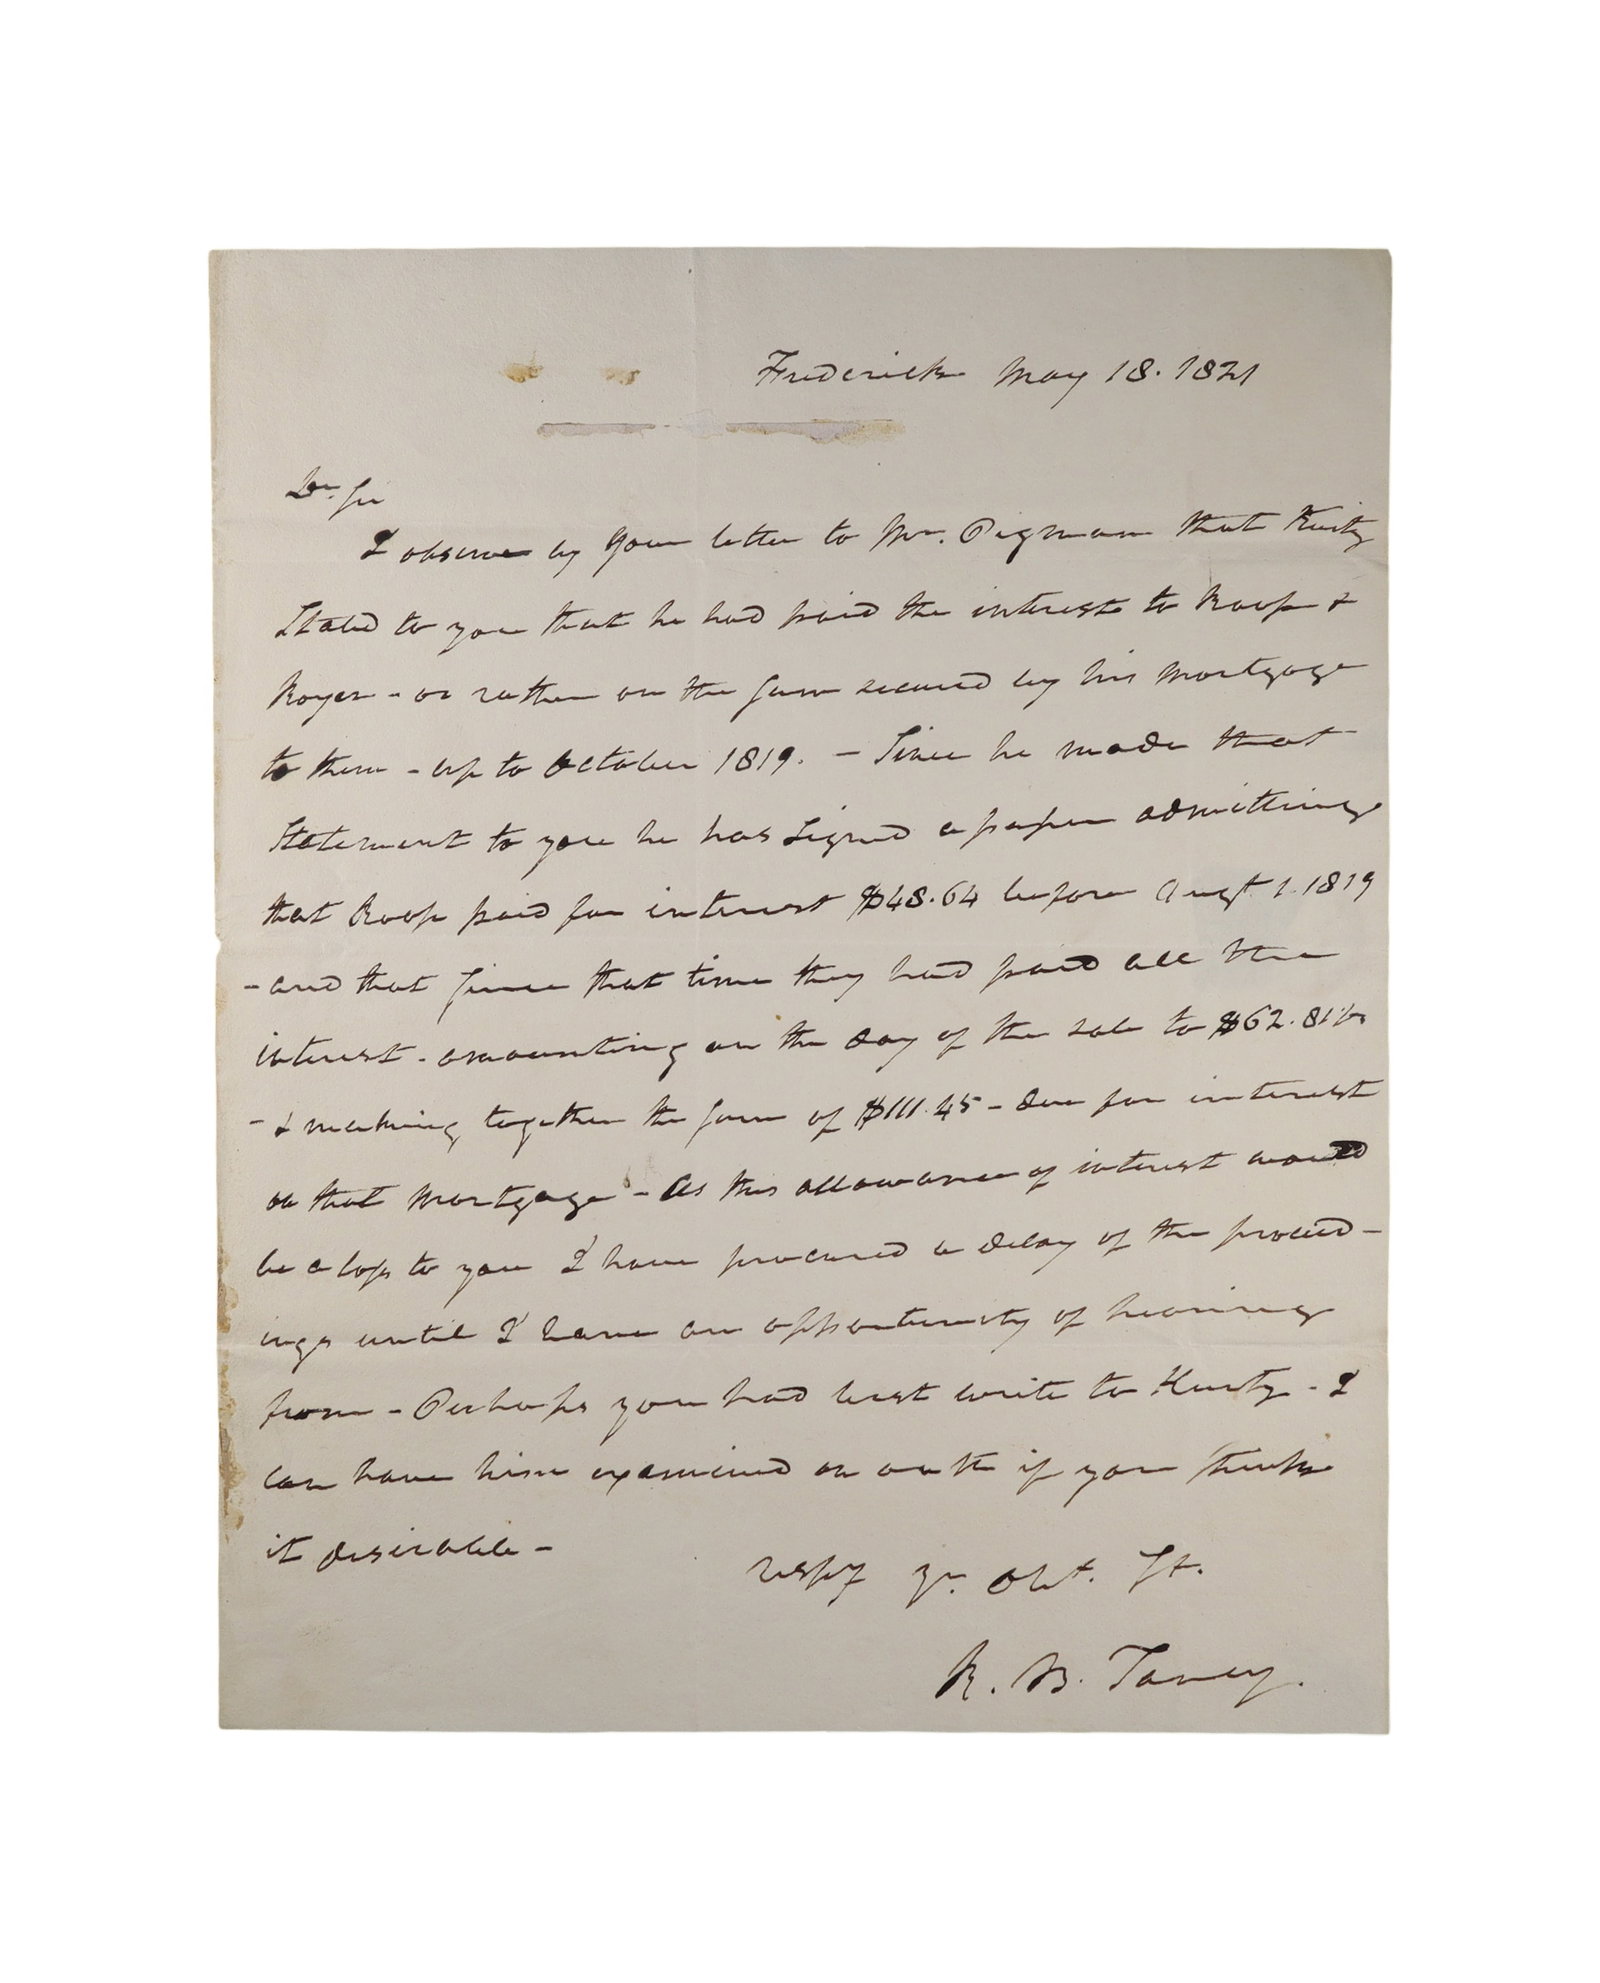 Frederick May 18. 1821
Dr. Sir
I observe by your letter to Mr. Pigman that Kurtz
Stated to you that he had paid the interest to Roop &
Royer - or rather on the sum secured by his mortgage
to them - up to October 1819. - Since he made that
Statement to you he has signed a paper admitting
that Roop paid for interest $48.64 before Augt 1. 1819
- and that since that time they had paid all the
interest - amounting on the day of the sale to $62.81
- & making together the sum of $111.45 - due for interest
on that mortgage - As this allowance of interest would
be a loss to you I have procured a delay of the proceed-
ings until I have an opportunity of hearing
from - Perhaps you had best write to Kurtz - I
can have him examined on oath if you think
it desirable -
respy yr. Obt. St.
R. B. Taney.